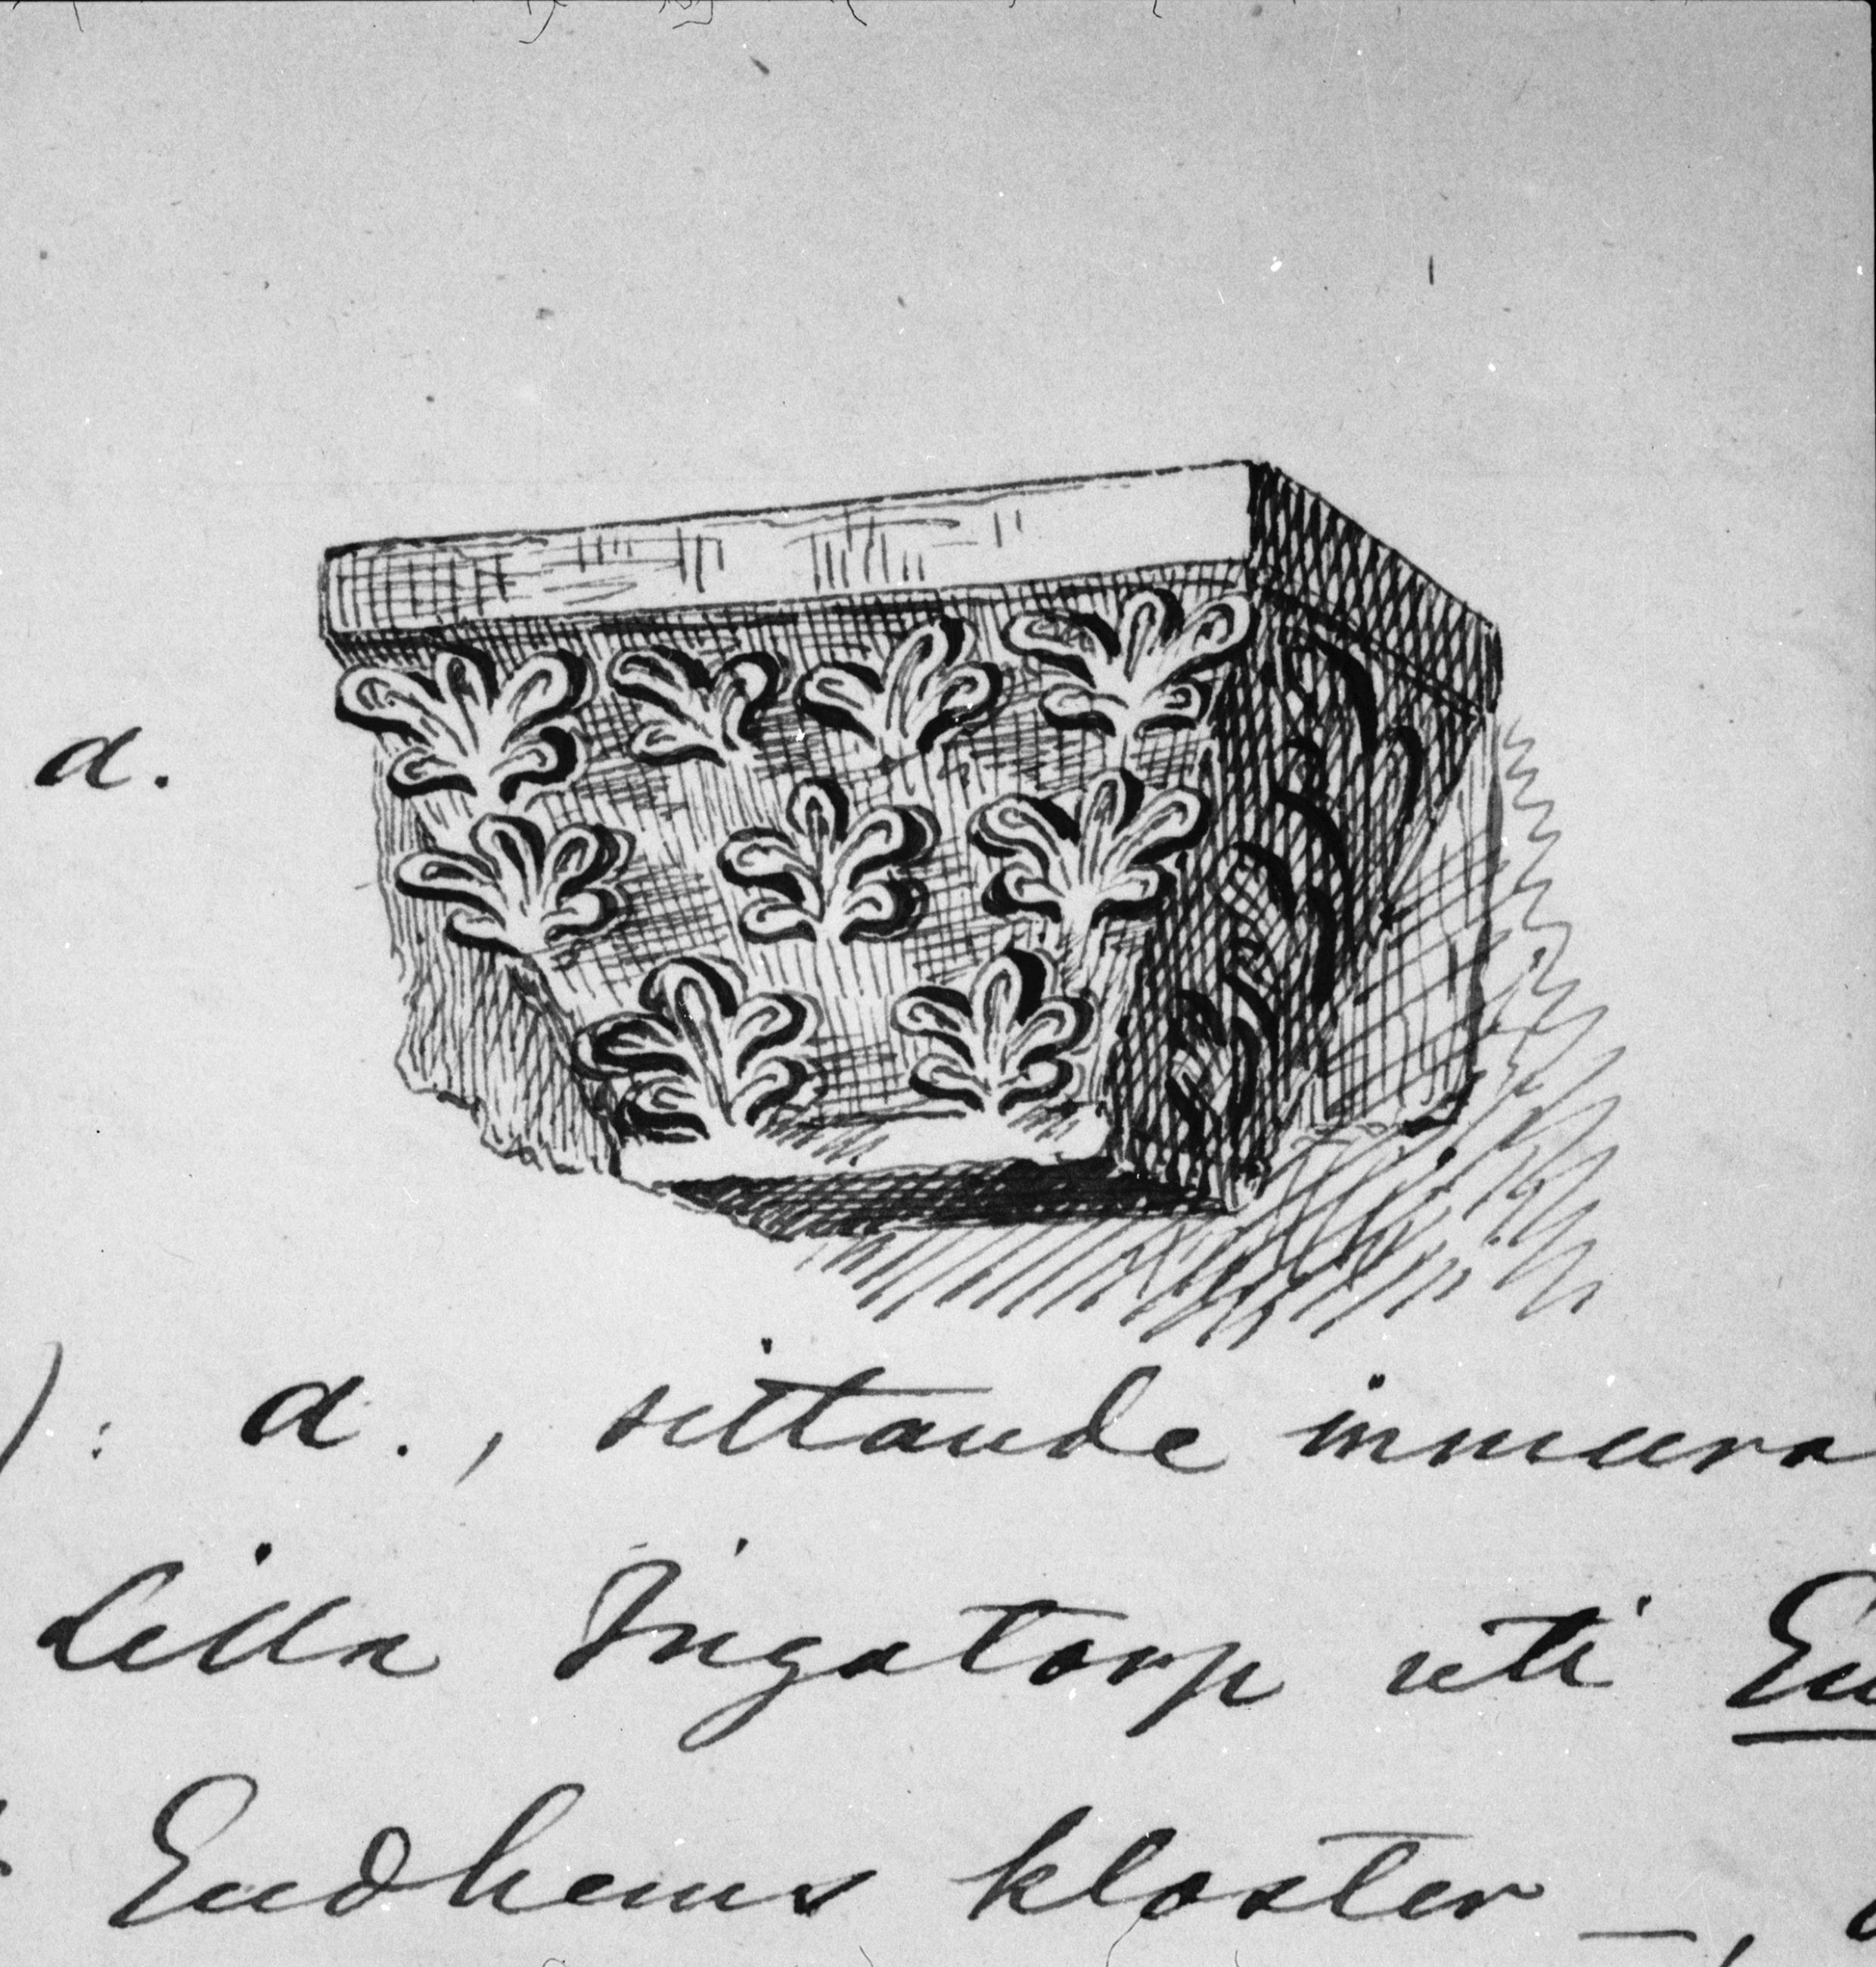 a.
): a., sittande inmura
Lilla Ingatorp uti
Gudhems kloster —,